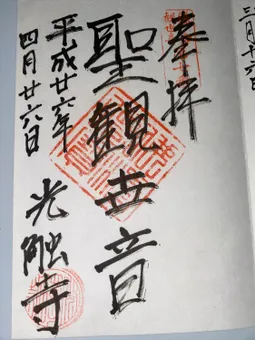 奉拝
聖観世音
平成廿六年
四月廿六日
光触寺